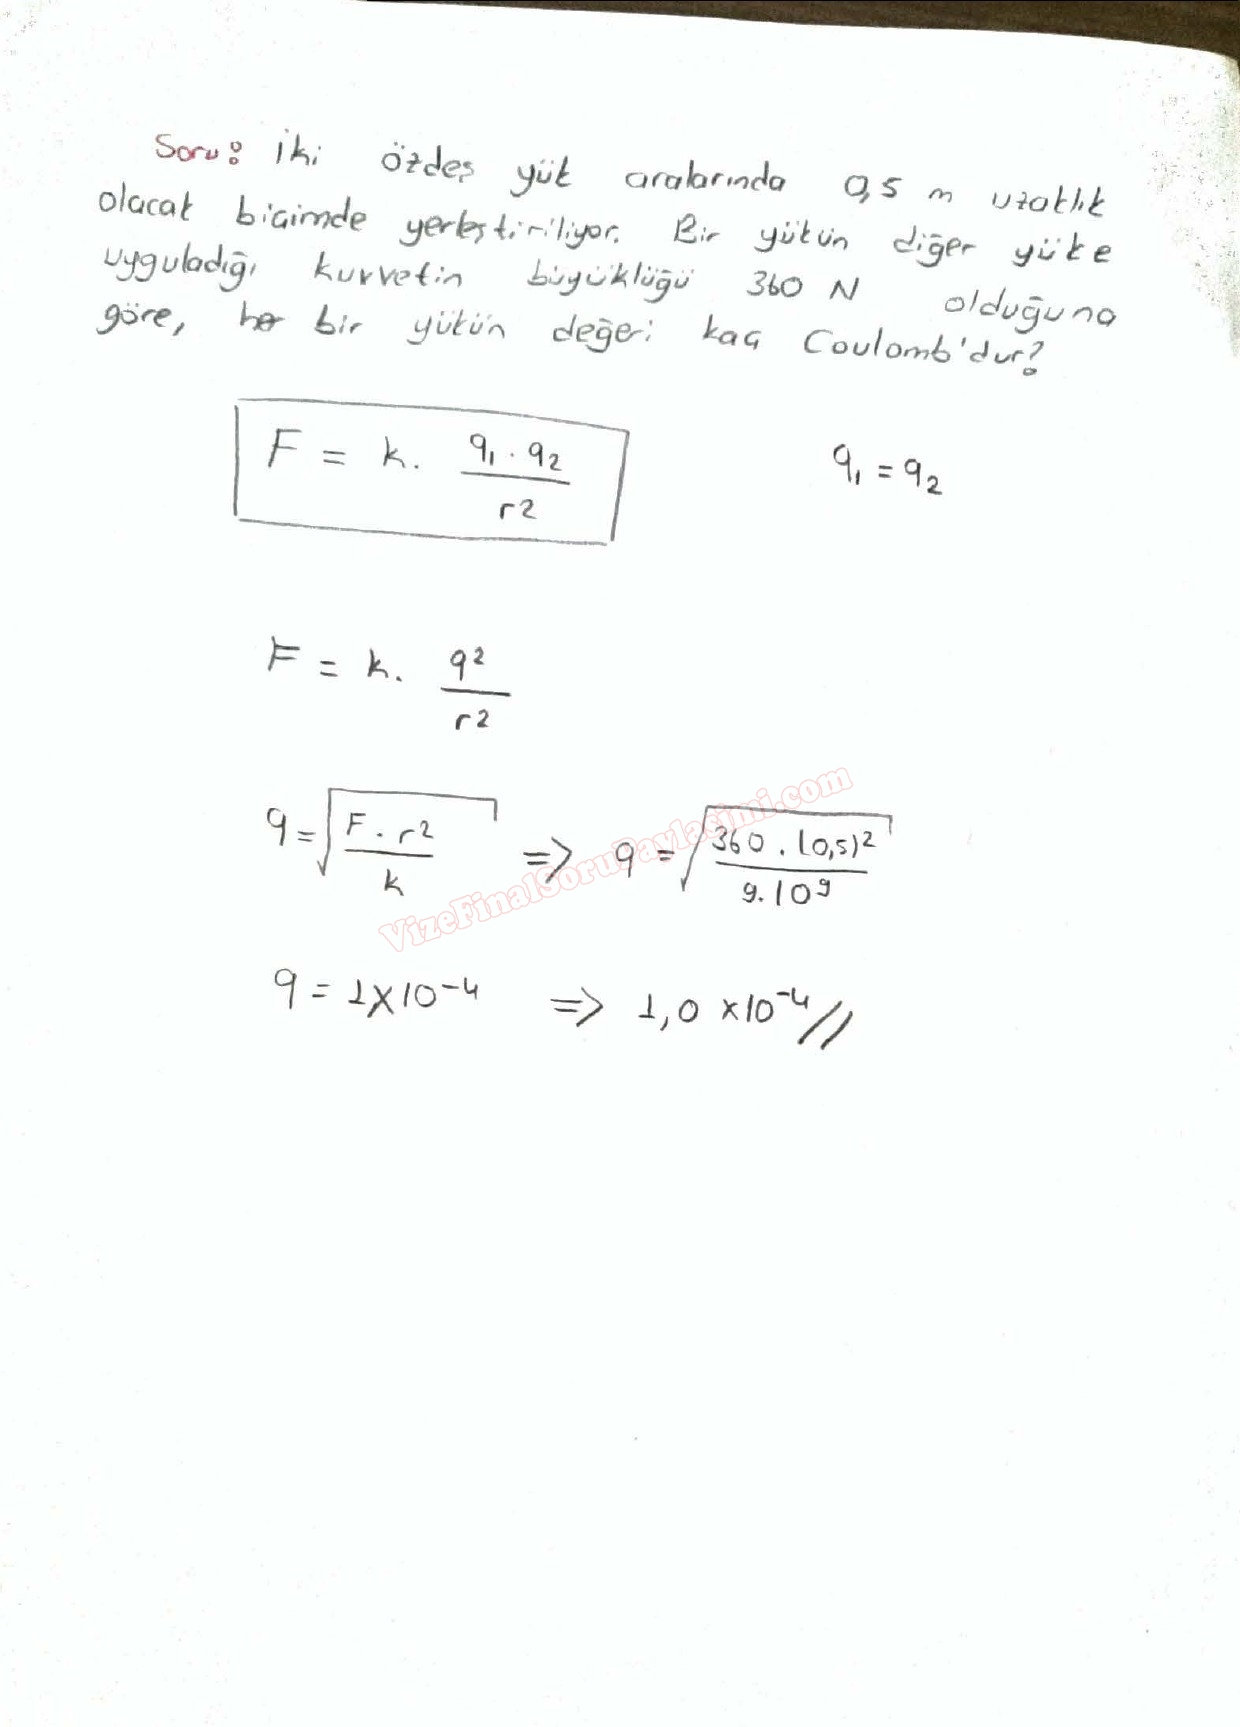 Soru: İki özdeş yük aralarında 0,5 m uzaklık
olacak biçimde yerleştiriliyor. Bir yükün diğer yüke
uyguladığı kuvvetin büyüklüğü 360 N olduğuna
göre, her bir yükün değeri kaç Coulomb'dur?
F = k. q₁ . q₂ / r²
q₁ = q₂
F = k. q² / r²
q = √(F . r² / k) => q = √(360 . (0,5)² / 9.10⁹)
VizeFinalSoruPaylasimi.com
q = 1x10⁻⁴ => 1,0 x10⁻⁴//